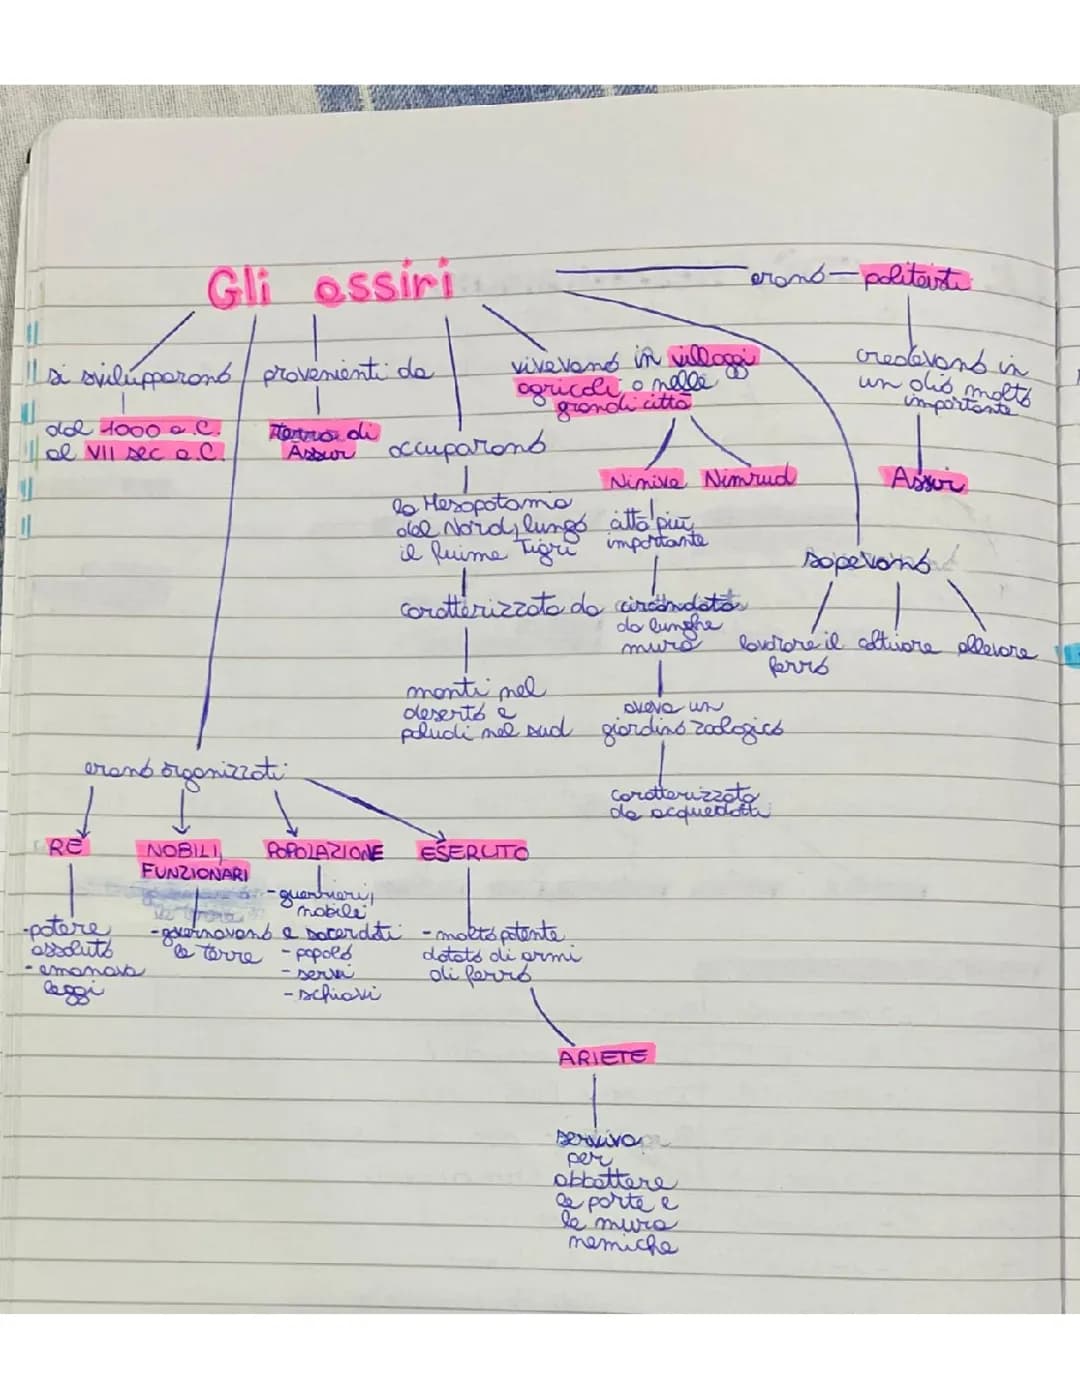 Gli assiri
erano - politeisti
si svilupparono
dal 1000 a.C.
al VII sec a.C.
provenienti da
terra di
Assur
occuparono
la Mesopotamia
del Nord, lungo
il fiume Tigri
caratterizzata da
monti nel
deserto e
paludi nel sud
vivevano in villaggi
agricoli o nelle
grandi città
Ninive Nimrud
città più
importante
circondata
da lunghe
mura
aveva un
giardino zoologico
caratterizzata
da acquedotti
credevano in
un dio molto
importante
Assur
sapevano
lavorare il
ferro
coltivare
allevare
erano organizzati
RE
-potere
assoluto
-emanava
leggi
NOBILI,
FUNZIONARI
-governavano
le terre
POPOLAZIONE
-guerrieri,
nobili
e sacerdoti
-popolo
-servi
-schiavi
ESERCITO
-molto potente
dotato di armi
di ferro
ARIETE
serviva
per
abbattere
le porte e
le mura
nemiche